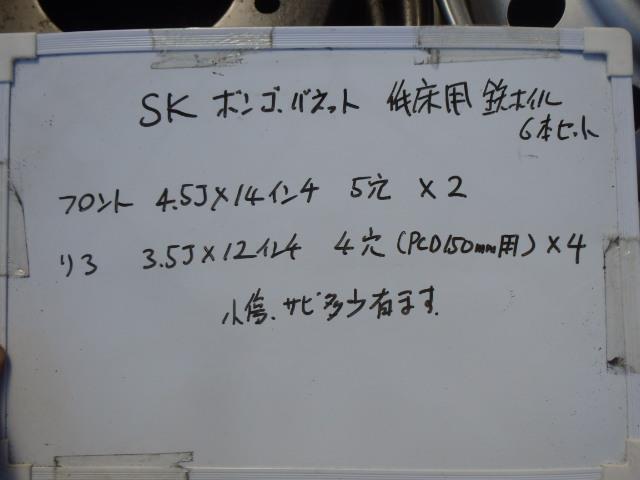 SK ボンゴ.バネット 低床用 鉄ホイル
6本セット
フロント 4.5J×14インチ 5穴 ×2
リヤ 3.5J×12インチ 4穴(PCD150mm用)×4
小傷.サビ多少有ます.